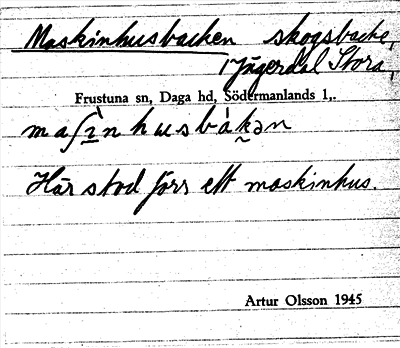 Maskinhusbacken skogsbacke,
1 Jügerdal Stora,
Frustuna sn, Daga hd, Södermanlands l,.
maʃì̠nhusbàk̬ən
Här stod förr ett maskinhus.
Artur Olsson 1945